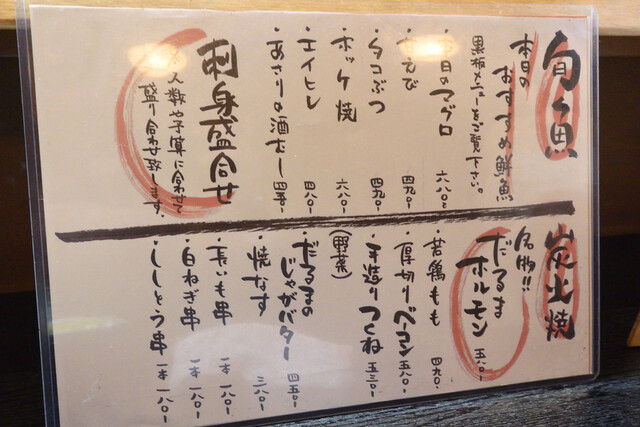 旬魚
本日の
おすすめ鮮魚
黒板メニューをご覧下さい。
・本日のマグロ 六八〇
・甘えび 四九〇
・タコぶつ 四九〇
・ホッケ焼 六八〇
・エイヒレ 四八〇
・あさりの酒むし 四五〇
刺身盛合せ
人数や予算に合わせて
盛り合わせ致します。
炭火焼
名物!!
だるま
ホルモン 五八〇
・若鶏もも 四九〇
・厚切りベーコン 五八〇
・手造りつくね 五三〇
(野菜)
・だるまの
じゃがバター 四五〇
・焼なす 三八〇
・長いも串 一本 一八〇
・白ねぎ串 一本 一八〇
・ししとう串 一本 一八〇